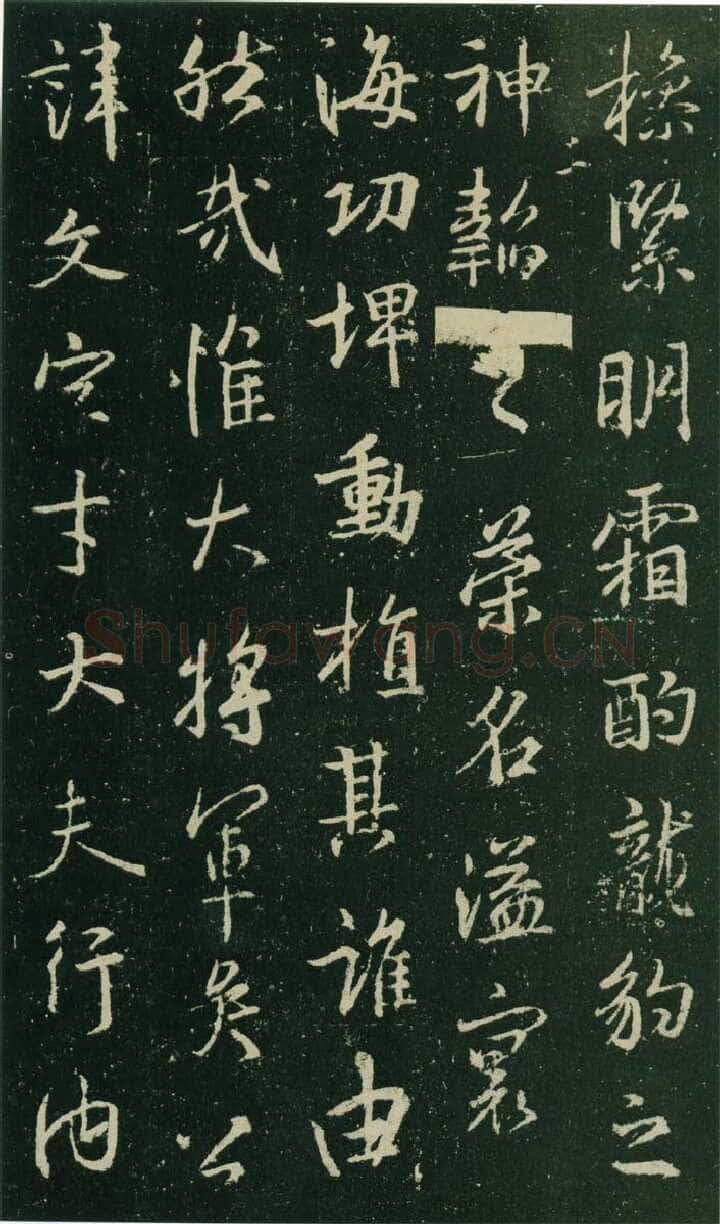 操緊明霜酌龍豹之
神韜榮名溢寰
海功埤動植其誰由
然哉惟大將軍矣公
諱文字才大夫行内
Shufawang.CN